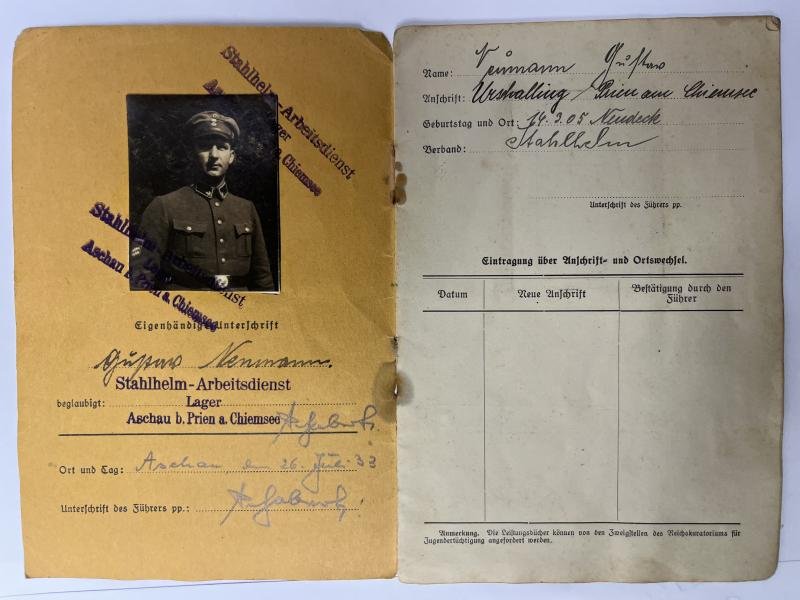 Stahlhelm-Arbeitsdienst
Lager
Aschau b. Prien a. Chiemsee
Stahlhelm-Arbeitsdienst
Lager
Aschau b. Prien a. Chiemsee
Eigenhändige Unterschrift
Gustav Neumann.
Stahlhelm-Arbeitsdienst
beglaubigt: Lager
Aschau b. Prien a. Chiemsee
Ort und Tag: Aschau, den 26. Juli 33
Unterschrift des Führers pp.:
Name: Neumann Gustav
Anschrift: Urschalling / Prien am Chiemsee
Geburtstag und Ort: 14.2.05 Neudeck
Verband: Stahlhelm
Unterschrift des Führers pp.
Eintragung über Anschrift- und Ortswechsel.
Datum Neue Anschrift Bestätigung durch den Führer
Anmerkung. Die Leistungsbücher können von den Zweigstellen des Reichskuratoriums für
Jugendertüchtigung angefordert werden.